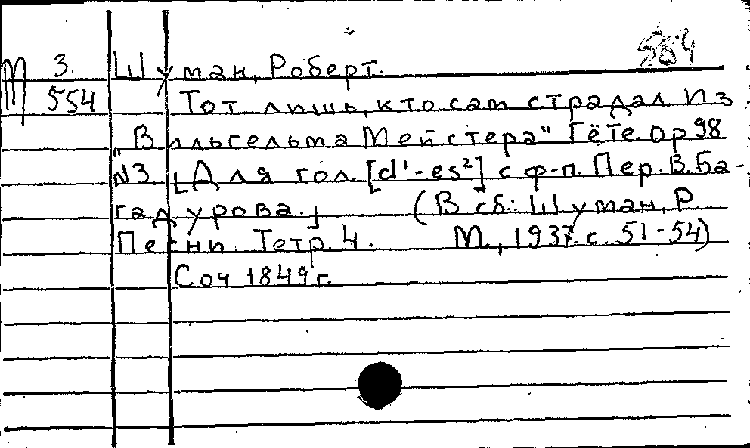 554
М 3. Шуман, Роберт.
554 Тот лишь, кто сам страдал Из
„Вильгельма Мейстера" Гёте. Op 98
N3 [Для гол. [d¹-es²] с ф-п. Пер. В. Ба-
гадурова.] (В сб: Шуман, Р.
Песни. Тетр. 4. М., 1937. с. 51-54)
Соч 1849 г.